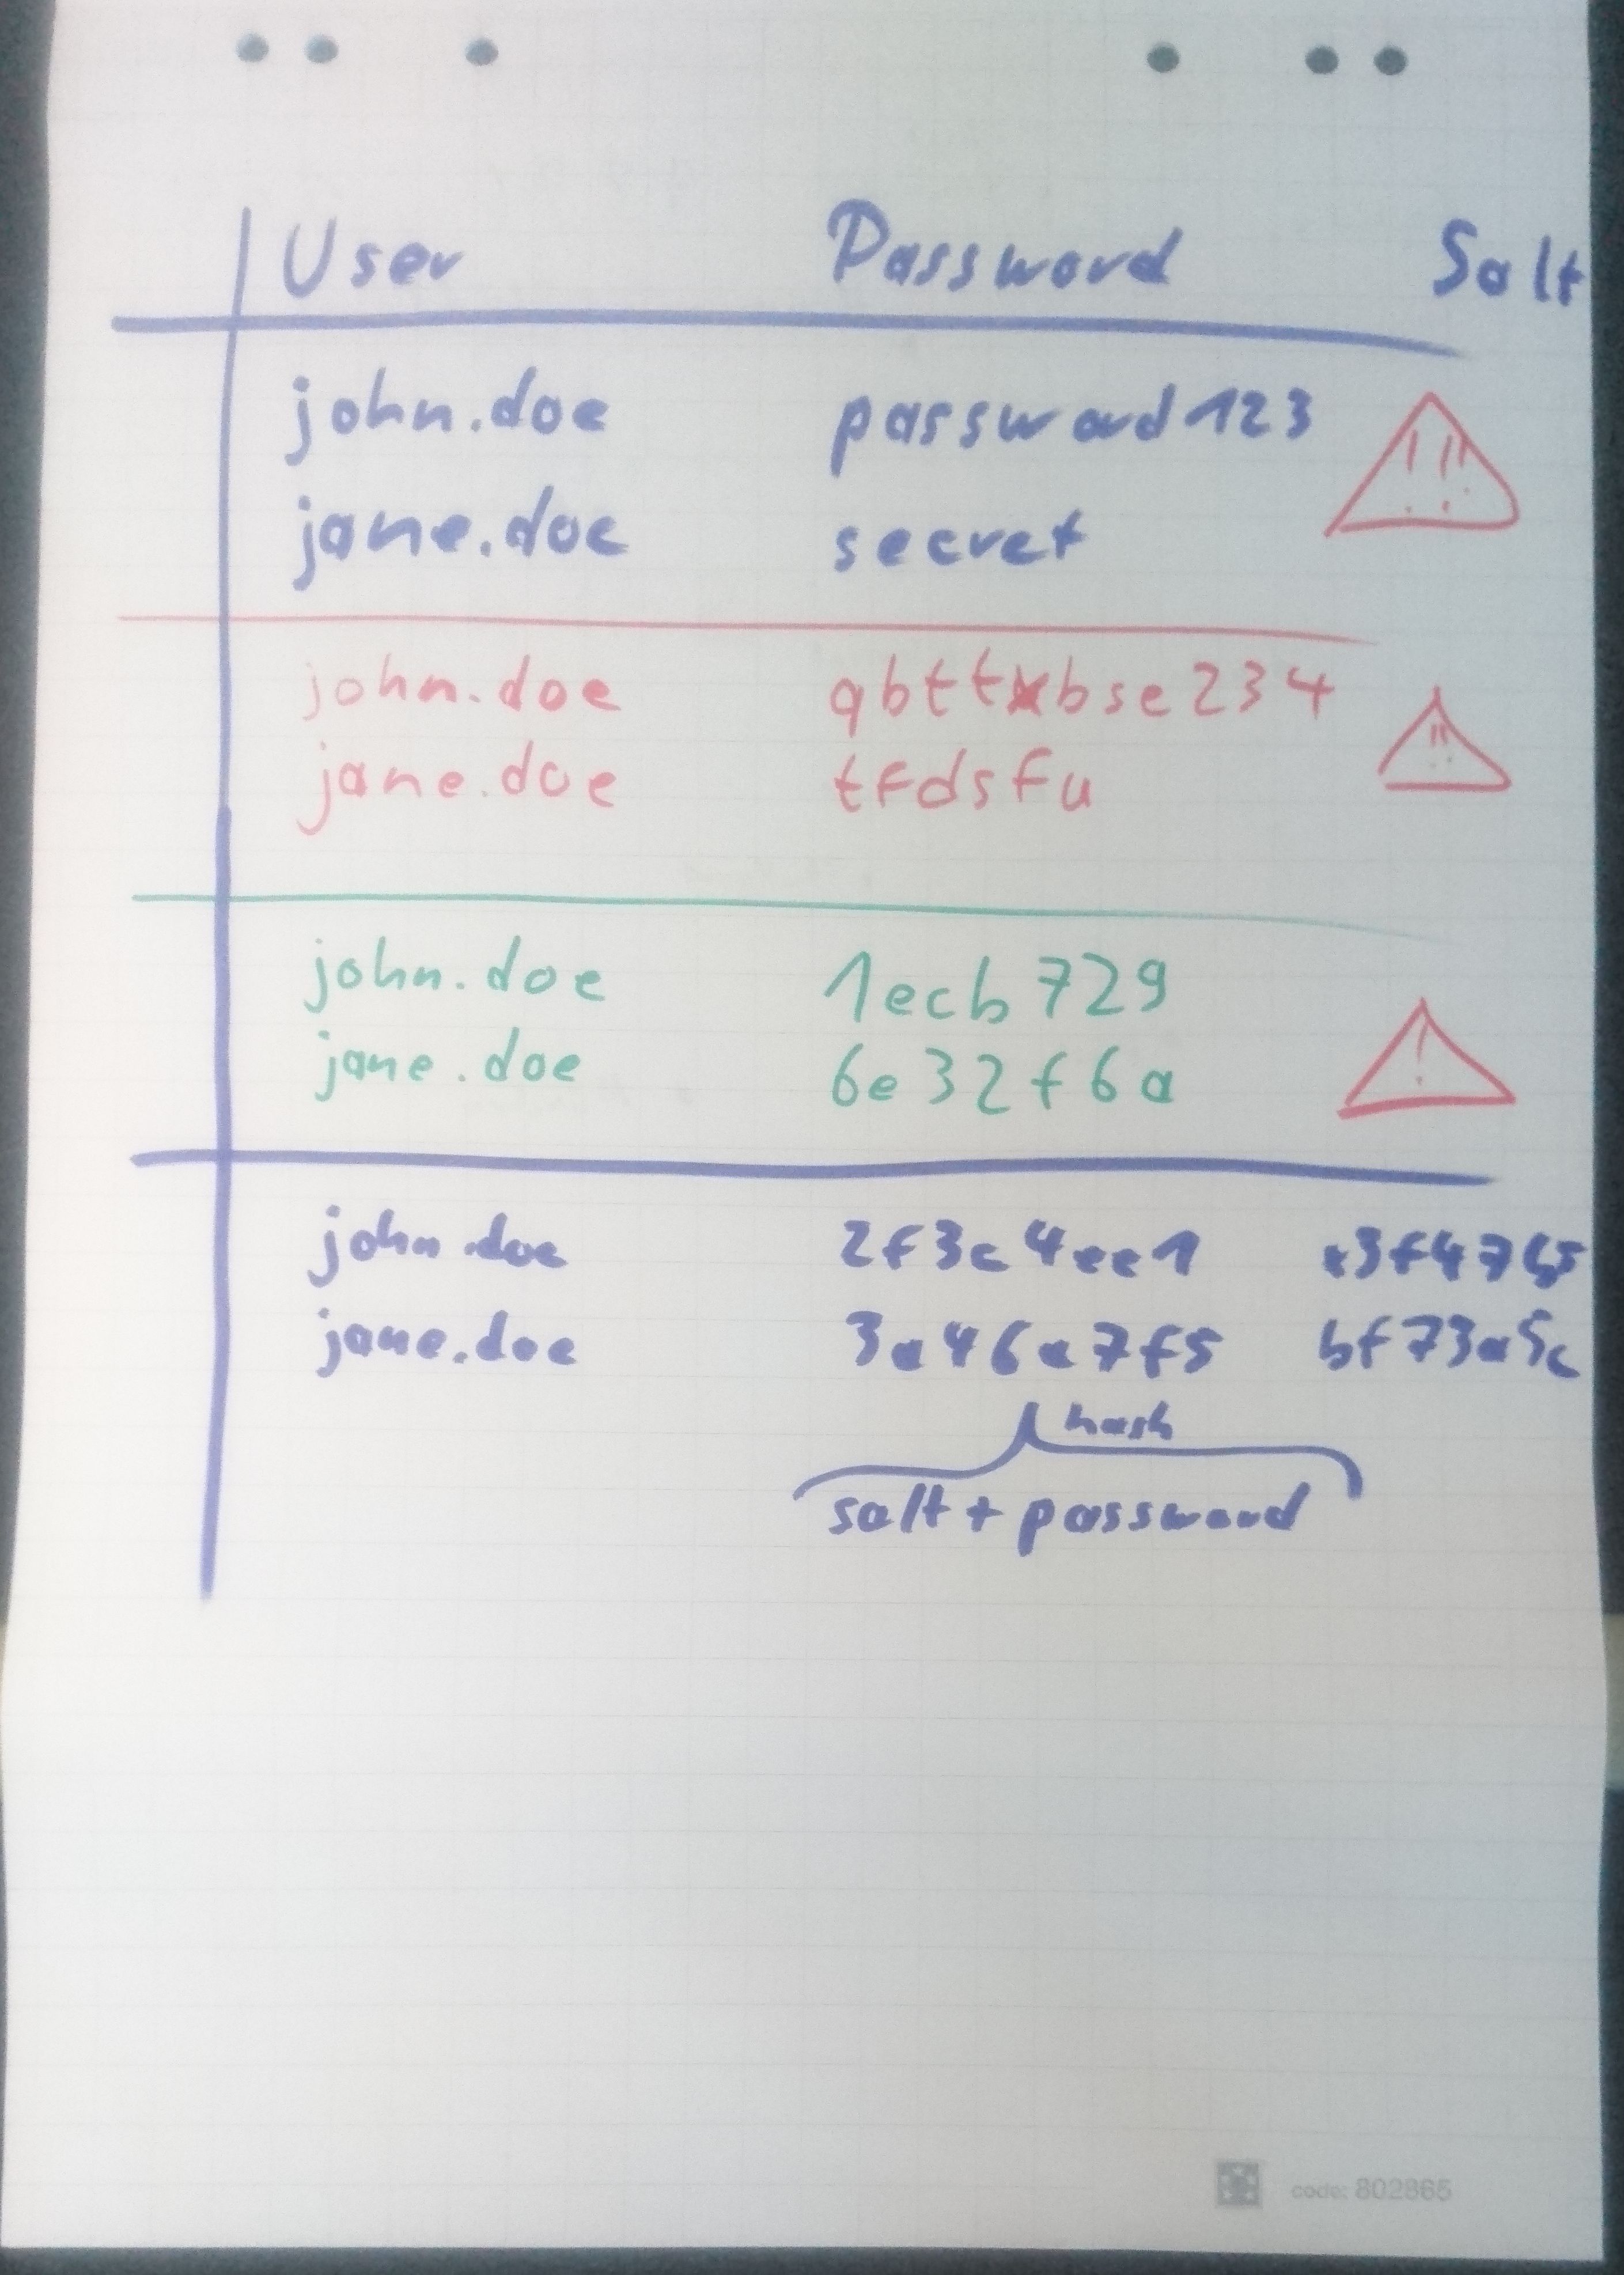 User Password Salt
john.doe password123 !!!
jane.doe secret
john.doe qbttxbse234 !!
jane.doe tfdsfu
john.doe 1ecb729 !
jane.doe 6e32f6a
john.doe 2f3c4ee1
jane.doe 3a46a7f5 bf73a5c
hash
salt + password
code: 802865